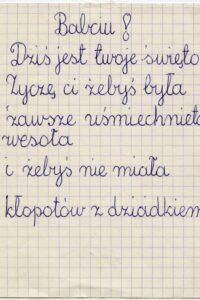 Babciu !
Dziś jest twoje święto
Życzę ci żebyś była
zawsze uśmiechnięta
wesoła
i żebyś nie miała
kłopotów z dziadkiem